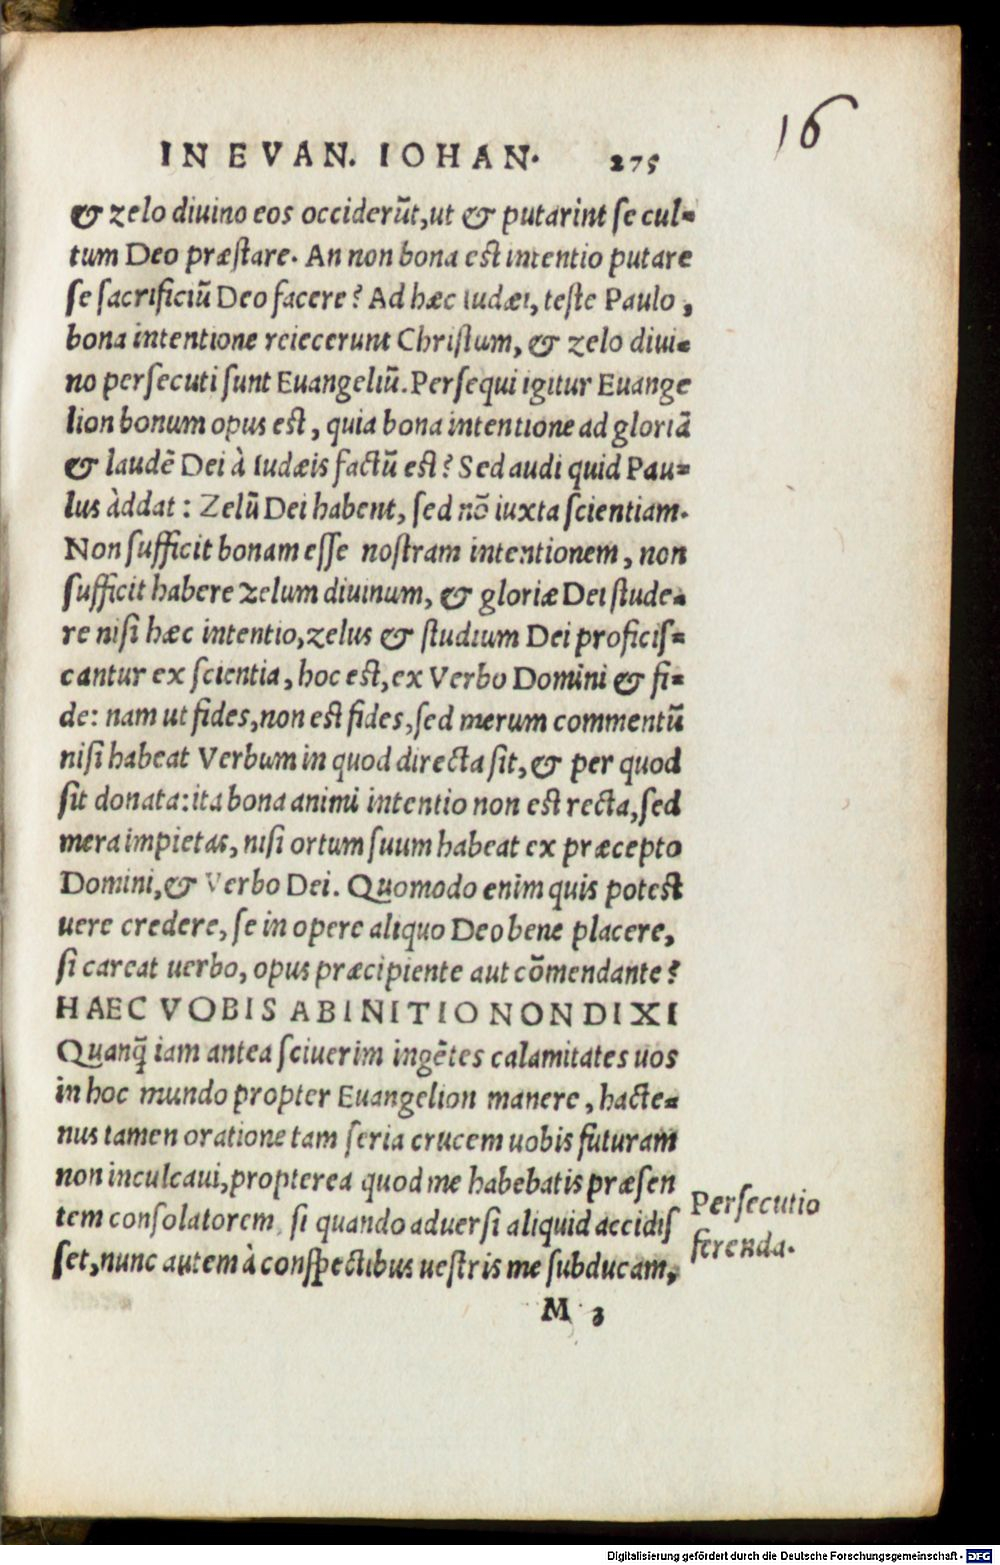 16
IN EVAN. IOHAN. 275
& zelo diuino eos occiderũt, ut & putarint se cul-
tum Deo præstare. An non bona est intentio putare
se sacrificiũ Deo facere? Ad hæc Iudæi, teste Paulo,
bona intentione reiecerunt Christum, & zelo diui-
no persecuti sunt Euangeliũ. Persequi igitur Euange
lion bonum opus est, quia bona intentione ad gloriã
& laudẽ Dei à Iudæis factũ est? Sed audi quid Pau-
lus àddat: Zelũ Dei habent, sed nõ iuxta scientiam.
Non sufficit bonam esse nostram intentionem, non
sufficit habere zelum diuinum, & gloriæ Dei stude-
re nisi hæc intentio, zelus & studium Dei proficis-
cantur ex scientia, hoc est, ex Verbo Domini & fi-
de: nam ut fides, non est fides, sed merum commentũ
nisi habeat Verbum in quod directa sit, & per quod
sit donata: ita bona animi intentio non est recta, sed
mera impietas, nisi ortum suum habeat ex præcepto
Domini, & Verbo Dei. Quomodo enim quis potest
uere credere, se in opere aliquo Deo bene placere,
si careat uerbo, opus præcipiente aut cõmendante?
HAEC VOBIS AB INITIO NON DIXI
Quanq̃ iam antea sciuerim ingẽtes calamitates uos
in hoc mundo propter Euangelion manere, hacte-
nus tamen oratione tam seria crucem uobis futuram
non inculcaui, propterea quod me habebatis præsen
tem consolatorem, si quando aduersi aliquid accidis
set, nunc autem à conspectibus uestris me subducam,
Persecutio
ferenda.
M 3
Digitalisierung gefördert durch die Deutsche Forschungsgemeinschaft - DFG